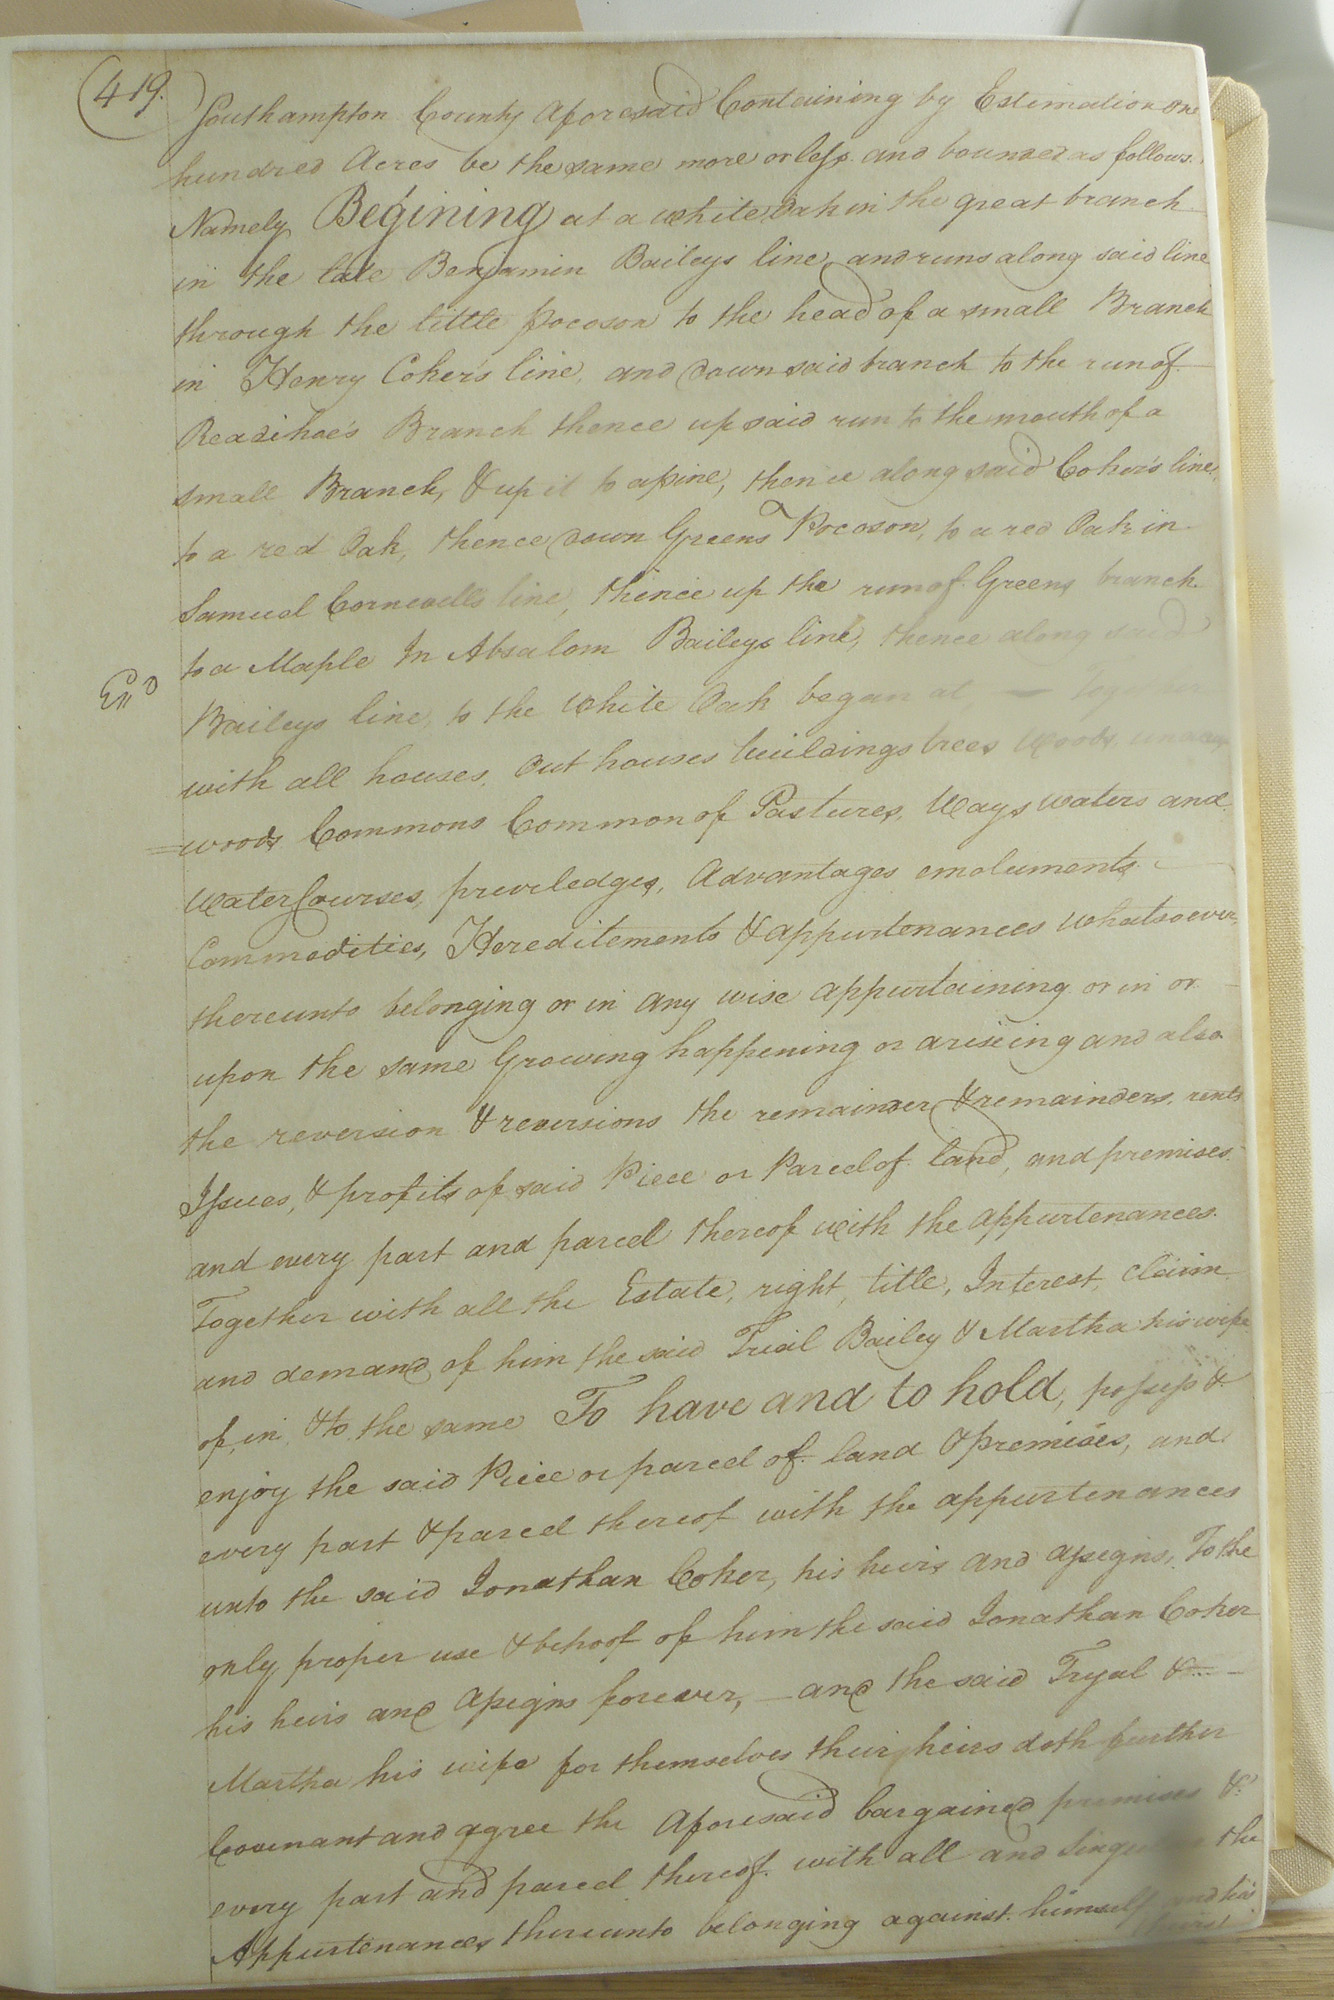 419.
Southampton County Aforesaid Containing by Estimation One
hundred Acres be the same more or less and bounded as follows.
Namely Begining at a white Oak in the great branch
in the late Benjamin Baileys line, and runs along said line
through the little Pocoson to the head of a small Branch
in Henry Coker's line, and down said branch to the run of
Readihoe's Branch thence up said run to the mouth of a
small Branch, & up it to a pine, thence along said Coker's line,
to a red Oak, thence down Greens Pocoson, to a red Oak in
Samuel Cornevells line, thence up the run of Greens branch
to a Maple In Absalom Baileys line, thence along said
Exd
Baileys line, to the White Oak began at, — Together
with all houses, out houses buildings trees woods, under
=woods Commons Common of Pastures, Ways waters and
Water Courses, priviledges, Advantages emoluments
Commodities, Hereditements & appurtenances whatsoever,
thereunto belonging or in any wise appurtaining or in or
upon the same Growing happening or ariseing and also
the reversion & reversions the remainder & remainders, rents
Issues, & profits of said Piece or Parcel of land, and premises.
and every part and parcel thereof with the appurtenances.
Together with all the Estate, right, title, Interest, claim
and demand of him the said Trial Bailey & Martha his wife
of, in, & to the same To have and to hold, possess &
enjoy the said Piece or parcel of land & premises, and
every part & parcel thereof with the appurtenances
unto the said Jonathan Coker, his heirs and assigns, To the
only proper use & behoof of him the said Jonathan Coker
his heirs and assigns forever, — and the said Tryal &
Martha his wife for themselves their heirs doth further
Covenant and agree the Aforesaid bargained premises &
every part and parcel thereof with all and Singular the
Appurtenances thereunto belonging against himself and his